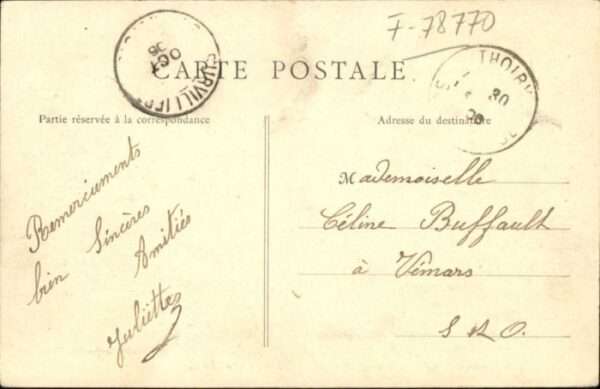 F-78770
SURVILLIERS
OCT
CARTE POSTALE
THOIRY
30
Partie réservée à la correspondance
Adresse du destinataire
Remerciements
bien Sincères
Amitiés
Juliette
Mademoiselle
Céline Buffault
à Vémars
S & O.